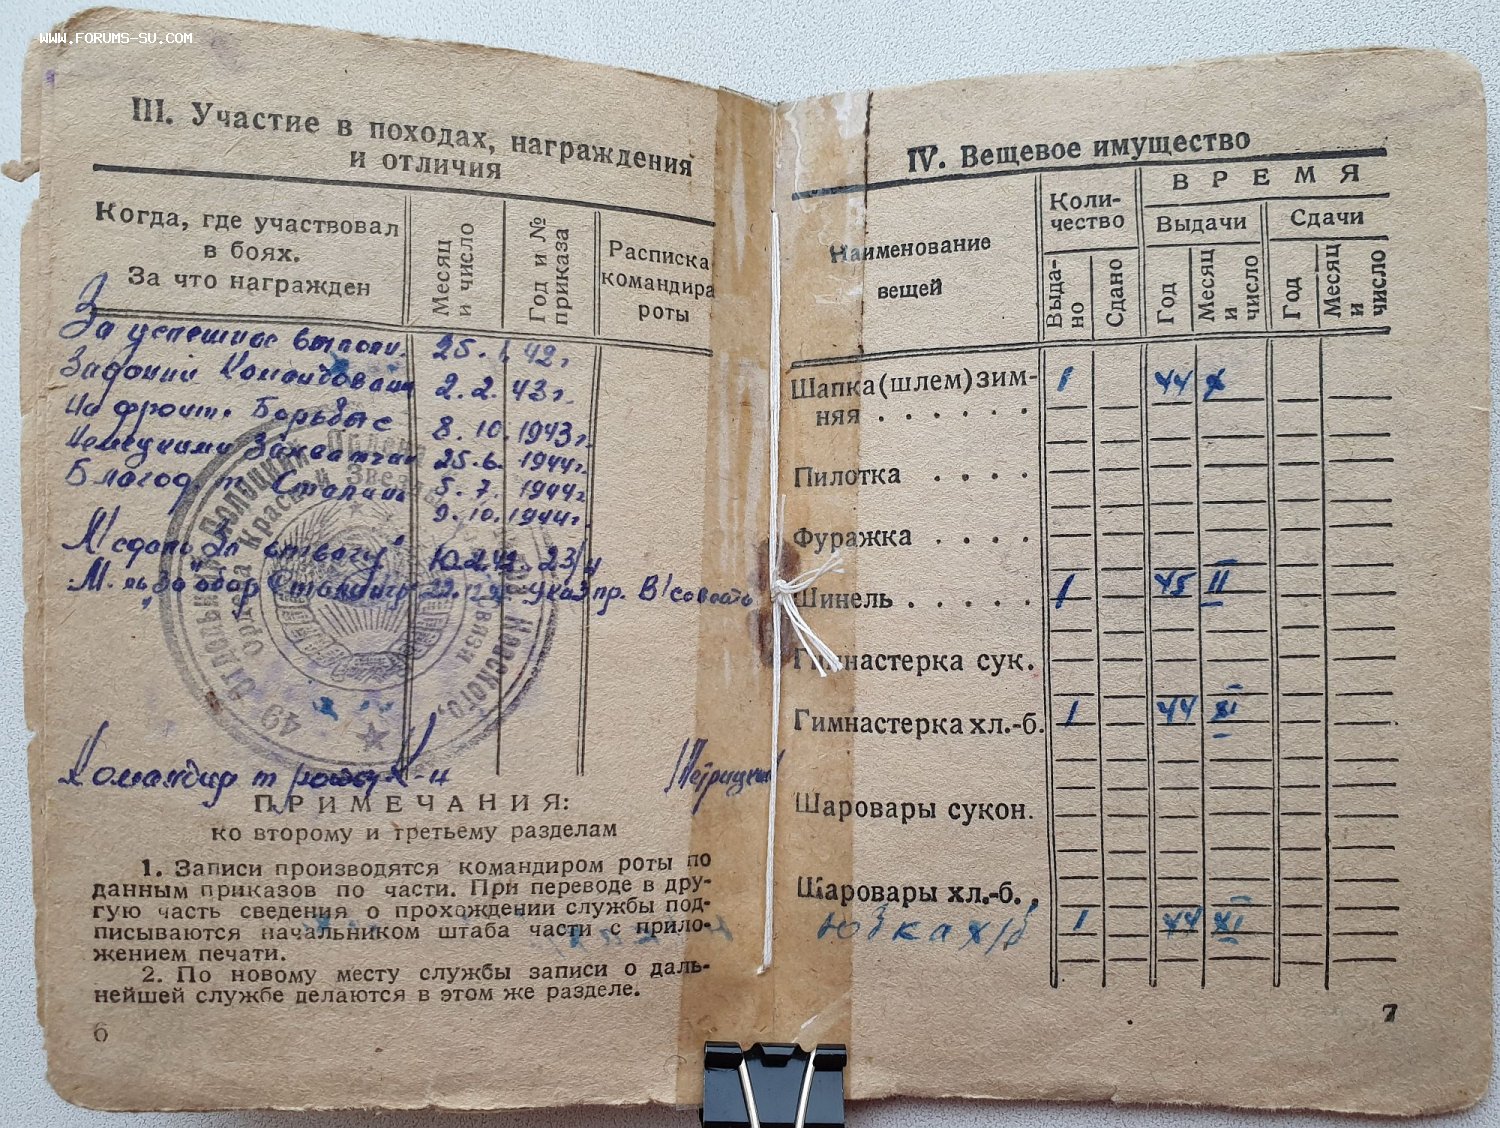 WWW.FORUMS-SU.COM
III. Участие в походах, награждения
и отличия
Когда, где участвовал
в боях.
За что награжден
Месяц
и число
Год и №
приказа
Расписка
командира
роты
За успешное выполн. 25. 1. 42 г
Заданий Командования 2. 2. 43 г.
На фронте Борьбы с 8. 10. 1943 г.
Немецкими 25. 6. 1944 г.
Благод. т. Сталин 5. 7. 1944 г
9. 10. 1944 г.
"За отвагу" 23/н
М. ль "За обор Сталингр" 22. 12. Указ пр. В/совета
Командир
/Петрицкий
49 Отдельный
Полоцкий
Ордена
Красной Звезды
Невского,
связи
ПРИМЕЧАНИЯ:
ко второму и третьему разделам
1. Записи производятся командиром роты по
данным приказов по части. При переводе в дру-
гую часть сведения о прохождении службы под-
писываются начальником штаба части с прило-
жением печати.
2. По новому месту службы записи о даль-
нейшей службе делаются в этом же разделе.
6
IV. Вещевое имущество
Наименование
вещей
Коли-
чество
ВРЕМЯ
Выдачи
Сдачи
Выда-
но
Сдано
Год
Месяц
и
число
Год
Месяц
и
число
Шапка (шлем) зим-
няя . . . . . . 1 44 X
Пилотка . . . .
Фуражка . . . .
Шинель . . . . . 1 45 II
Гимнастерка сук.
Гимнастерка хл.-б. 1 44 XI
Шаровары сукон.
Шаровары хл.-б. .
Юбка х/б 1 44 XI
7